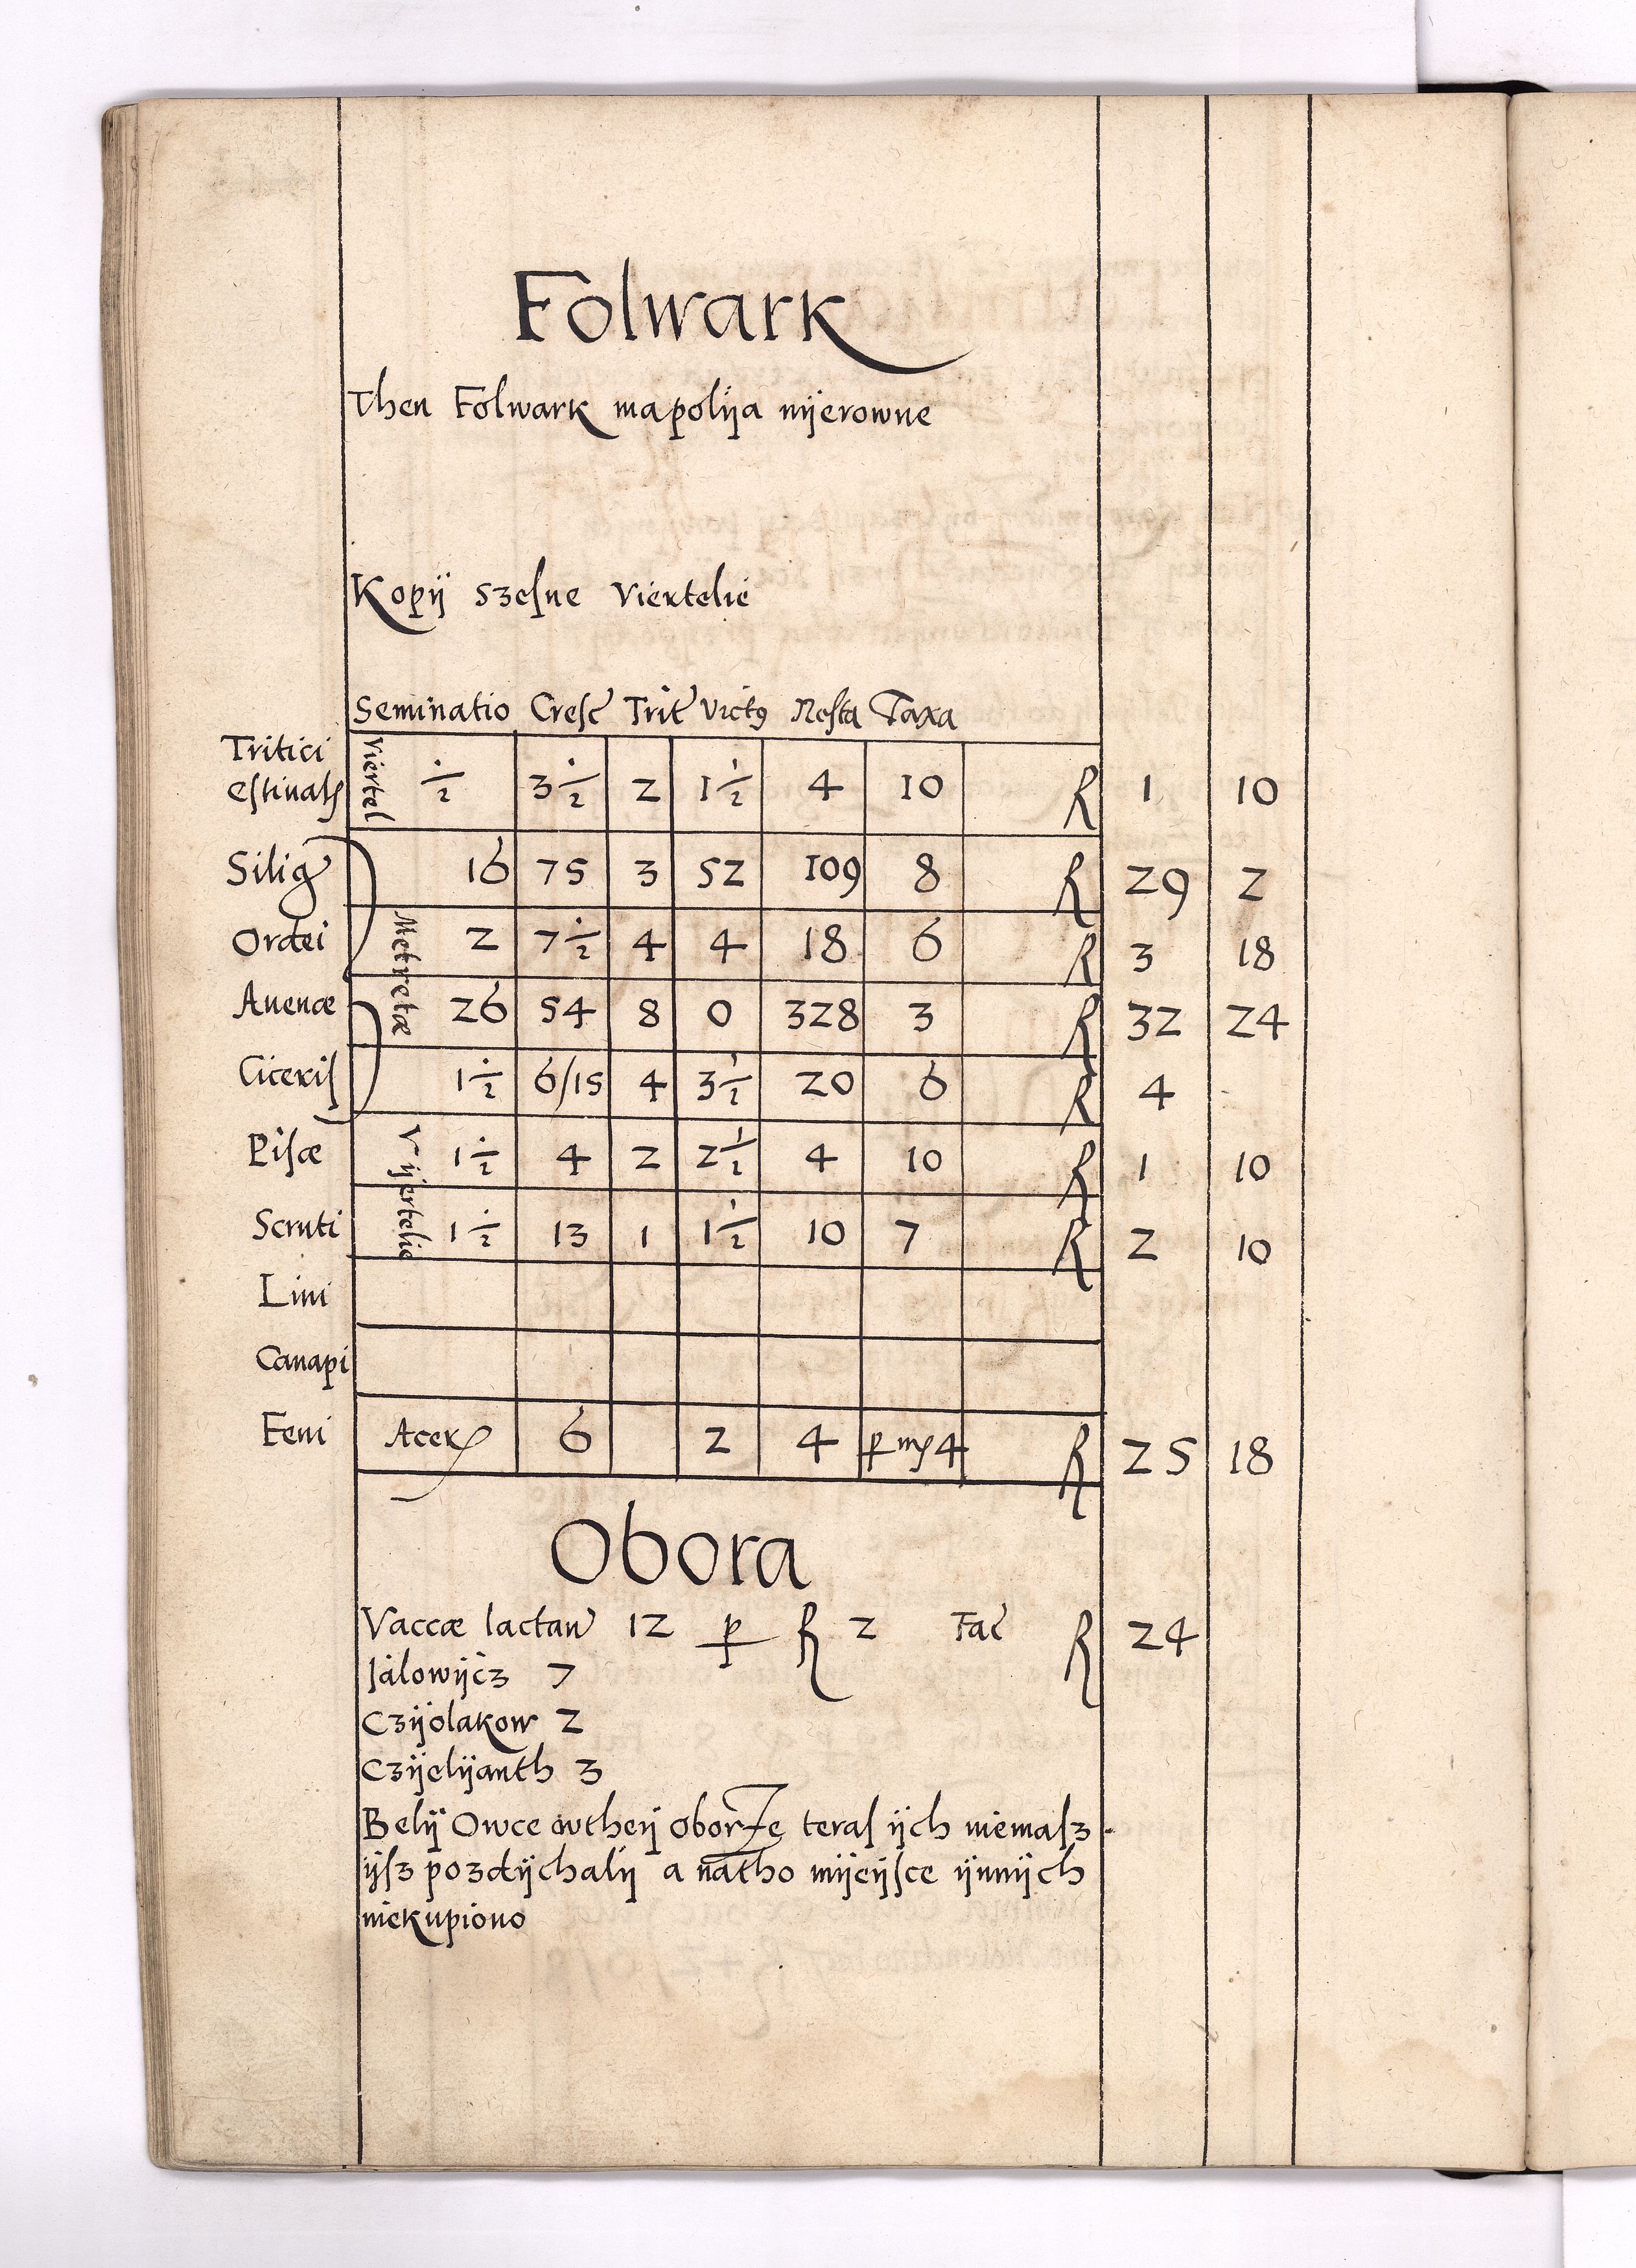 Folwark
Then Folwark ma polija nijerowne
Kopij szesne Viertelie
Seminatio Cresc Trit Victg Resta Taxa
Tritici estivals Viertel ½ 3½ 2 1½ 4 10 R 1 10
Silig 16 75 3 52 109 8 R 29 2
Ordei Metretæ 2 7½ 4 4 18 6 R 3 18
Auenæ 26 54 8 0 328 3 R 32 24
Ciceris 1½ 6/15 4 3½ 20 6 R 4
Pisæ Vijertelie 1½ 4 2 2½ 4 10 R 1 10
Scruti 1½ 13 1 1½ 10 7 R 2 10
Lini
Canapi
Feni Acer 6 2 4 p 4 R 25 18
Obora
Vaccæ lactan 12 p R 2 Fac R 24
Jalowijcz 7
Czijolakow 2
Czijelijanth 3
Belij Owce wtheij oborze teras ijch niemasz
ijsz pozdijchalij a natho mijeijsce ijnnijch
niekupiono